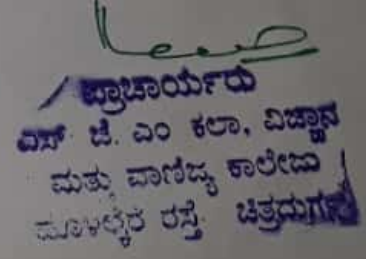 ಪ್ರಾಚಾರ್ಯರು
ಎಸ್ ಜೆ. ಎಂ ಕಲಾ, ವಿಜ್ಞಾನ
ಮತ್ತು ವಾಣಿಜ್ಯ ಕಾಲೇಜು
ರಸ್ತೆ ಚಿತ್ರದುರ್ಗ